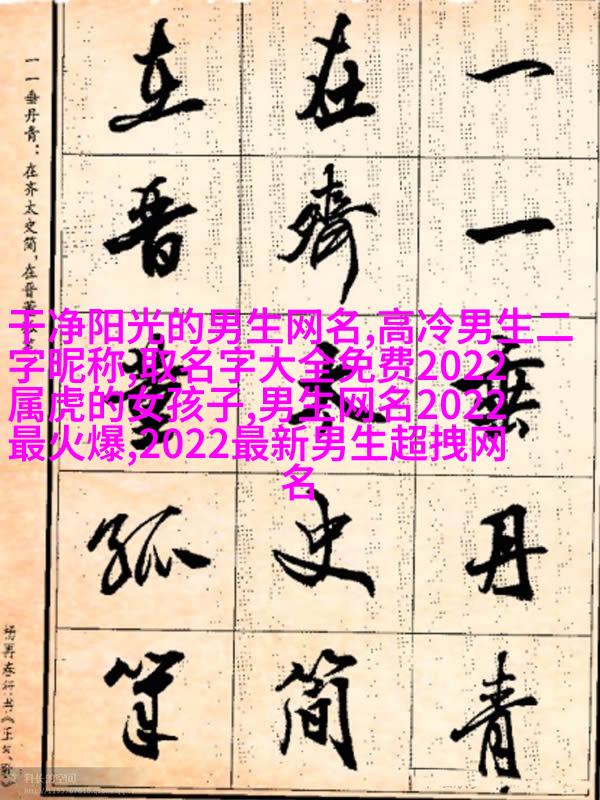 一一垂丹青
在齊太史簡
在晉董孤筆
一一垂丹青:在齐太史简,在晋董
杨再春行书《正气歌
干净阳光的男生网名,高冷男生二
字昵称,取名字大全免费2022
属虎的女孩子,男生网名2022
最火爆,2022最新男生超拽网
名
科长的空间